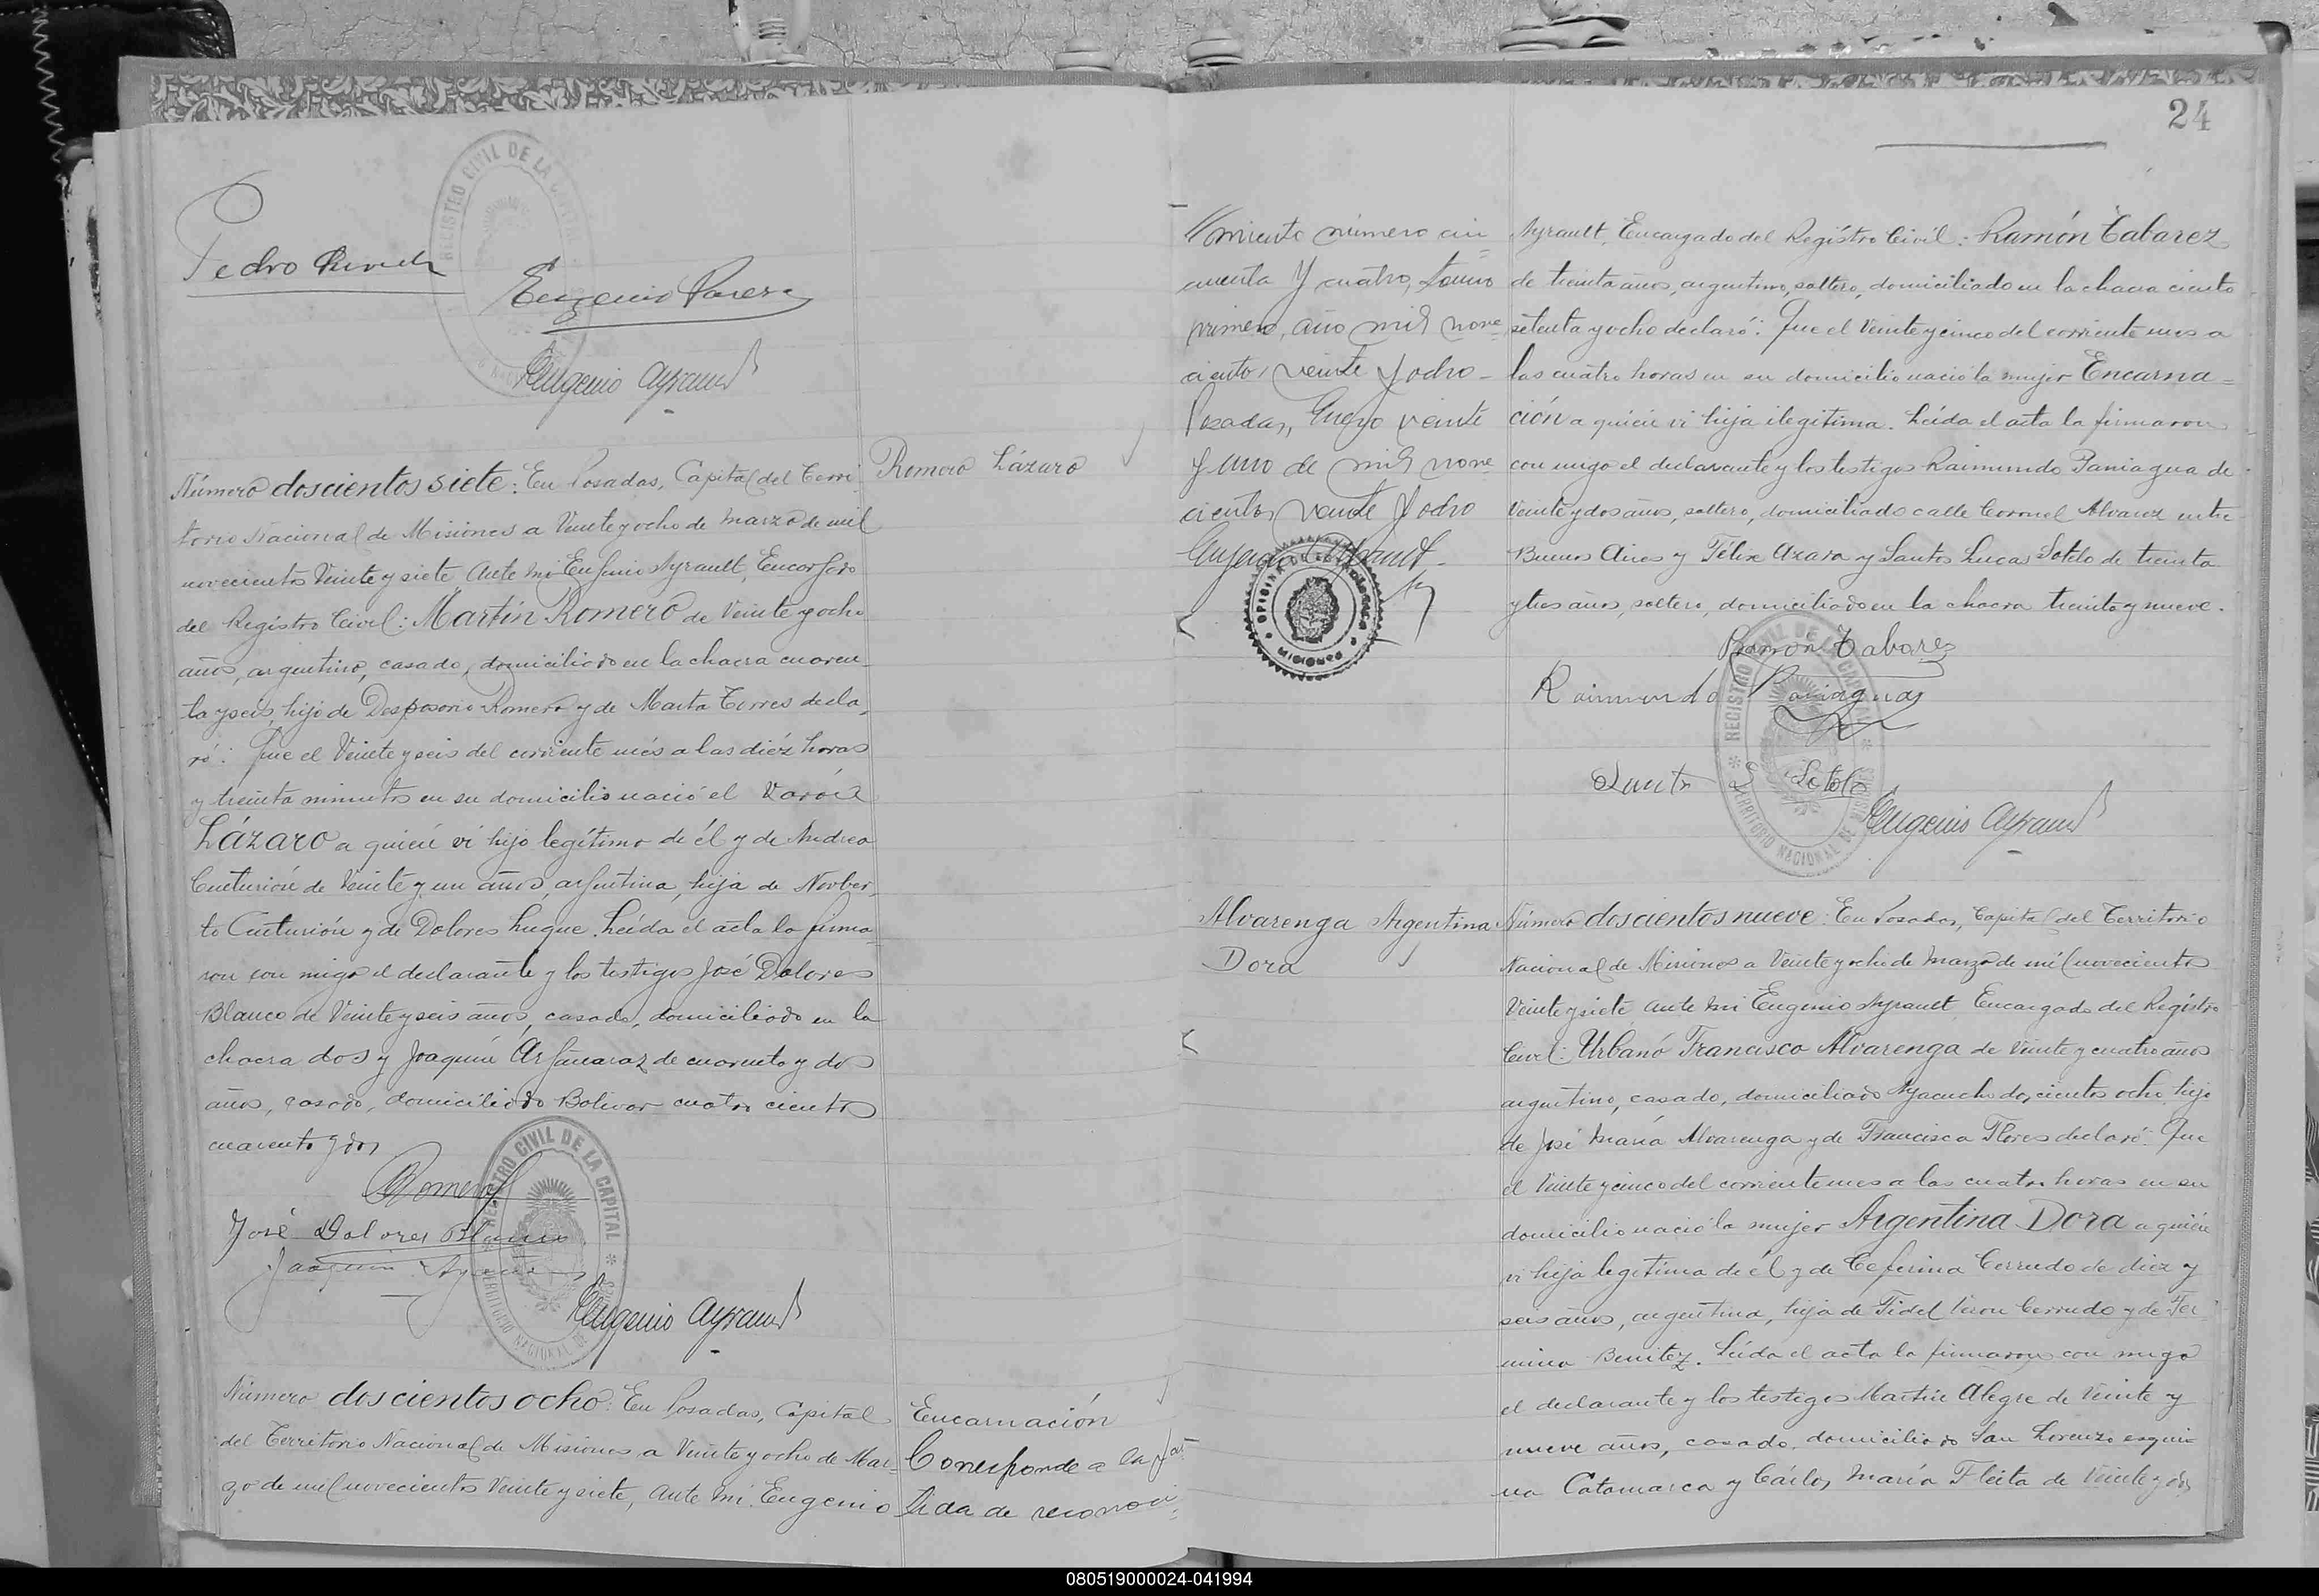 Pedro
Eugenio
Eugenio Ayrault
REGISTRO CIVIL DE LA
Número doscientos siete: En Posadas, Capital del Terri
torio Nacional de Misiones a Veinte y ocho de Marzo de mil
novecientos Veinte y siete Ante mi Eugenio Ayrault, Encargado
del Registro Civil: Martín Romero de Veinte y ocho
años, argentino, casado, domiciliado en la chacra cuaren
ta y seis, hijo de Desposorio Romero y de Marta Torres decla
ró: Que el Veinte y seis del corriente més a las diéz horas
y treinta minutos en su domicilio nació el Varón
Lázaro a quién vi hijo legítimo de él y de Andrea
Centurión de Veinte y un años, argentina, hija de Norber
to Centurión y de Dolores Luque. Leída el acta la firma
ron con migo el declarante y los testigos José Dolores
Blanco de Veinte y seis años, casado, domiciliado en la
chacra dos y Joaquín Argañaraz de cuarenta y dos
años, casado, domiciliado Bolivar cuatro cientos
cuarenta y dos
Romero Lázaro
Romero
José Dolores Blanco
Joaquin
Eugenio Ayrault
REGISTRO CIVIL DE LA CAPITAL
TERRITORIO NACIONAL DE MISIONES
Número doscientos ocho: En Posadas, Capital
del Territorio Nacional de Misiones a Veinte y ocho de Mar=
zo de mil novecientos Veinte y siete, Ante mi Eugenio
Encarnación
Corresponde a la par
tida de reconoci=
24
miento número cin
cuenta y cuatro, tomo
primero, año mil nove
cientos veinte y ocho -
Posadas, Enero veinte
y uno de mil nove
cientos veinte y ocho
Eugenio Ayrault -
MISIONES
Ayrault, Encargado del Registro Civil: Ramón Tabarez
de treinta años, argentino, soltero, domiciliado en la chacra ciento
setenta y ocho declaró: Que el Veinte y cinco del corriente mes a
las cuatro horas en su domicilio nació la mujer Encarna=
ción a quién vi hija ilegítima. Leída el acta la firmaron
con migo el declarante y los testigos Raimundo Paniagua de
Veinte y dos años, soltero, domiciliado calle Coronel Alvarez entre
Buenos Aires y Félix Azara y Santos Lucas Sotelo de treinta
y tres años, soltero, domiciliado en la chacra treinta y nueve.
Ramon Tabarez
Raimundo Paniagua
Sotelo
Eugenio Ayrault
REGISTRO CIVIL DE LA CAPITAL
TERRITORIO NACIONAL DE MISIONES
Alvarenga Argentina
Dora
Número doscientos nueve: En Posadas, Capital del Territorio
Nacional de Misiones a Veinte y ocho de Marzo de mil novecientos
Veinte y siete ante mi Eugenio Ayrault, Encargado del Registro
Civil: Urbano Francisco Alvarenga de Veinte y cuatro años
argentino, casado, domiciliado Ayacucho doscientos ocho, hijo
de José María Alvarenga y de Francisca Flores declaró: Que
el Veinte y cinco del corriente mes a las cuatro horas en su
domicilio nació la mujer Argentina Dora a quién
vi hija legítima de él y de Ceferina Cerrudo de diez y
seis años, argentina, hija de Fidel Cerrudo y de Fer
mina Benitez. Leída el acta la firmaron con migo
el declarante y los testigos Martín Alegre de Veinte y
nueve años, casado, domiciliado San Lorenzo esqui=
na Catamarca y Cárlos María Fleita de Veinte y dos
080519000024-041994